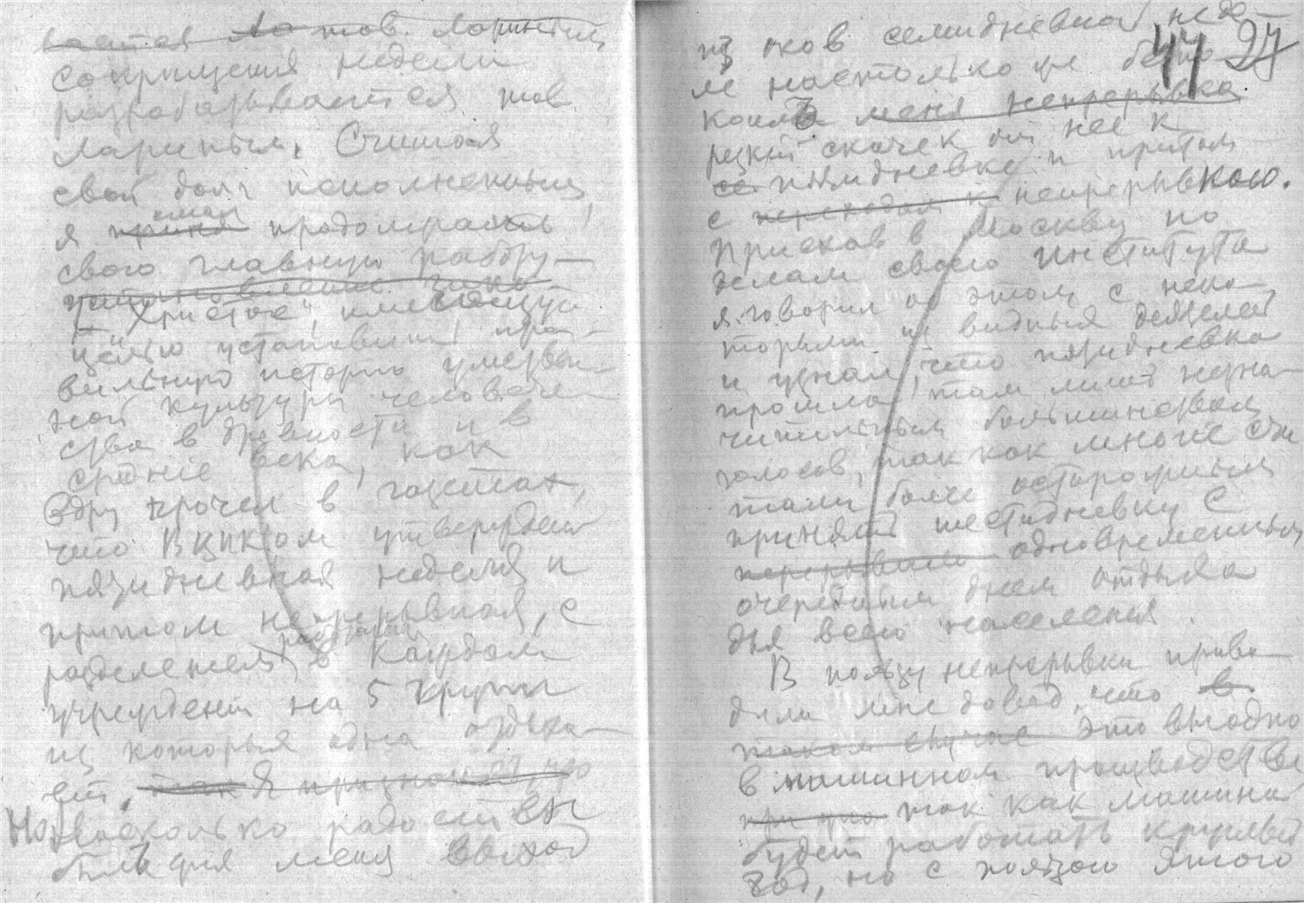 вается тов. Лариным
сокращения недели
разрабатывается тов
Лариным. Считая
свой долг исполненным,
я стал продолжать
свою главную работу—
"Христос", имеющую
целью установить пра-
вильную историю умствен-
ной культуры человече-
ства в древности и в
средние века, как
вдруг прочел в газетах,
что ВЦИКом утверждена
пятидневная неделя и
притом непрерывная, с
разделением рабочих в каждом
учреждении на 5 групп
из которых одна отдыха-
ет, так Я признаюсь что
Но насколько радостен
был для меня выход
44 27
из оков семидневной неде-
ле настолько же беспо-
коил меня непрерывка
резкий скачек от нее к
пятидневке и притом
с переходом к непрерывкою.
Приехав в Москву по
делам своего Института
я говорил об этом с неко-
торыми из видных деятелей
и узнал, что пятидневка
прошла там лишь незна-
чительным большинством
голосов, так как многие счи
тали более осторожным
принять шестидневку с
перерывом одновременным
очередным днем отдыха
для всего населения.
В пользу непрерывки приво-
дили мне довод, что в
таком случае это выгодно
в машинном производстве
при что так как машина
будет работать круглый
год, но с пользою этого